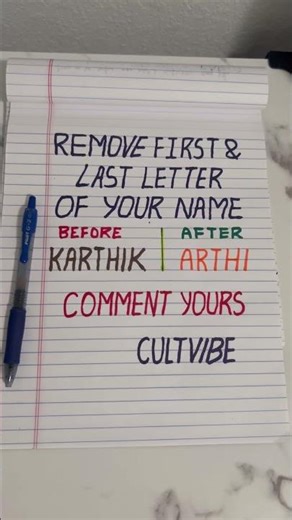 REMOVE FIRST &
LAST LETTER
OF YOUR NAME
BEFORE | AFTER
KARTHIK | ARTHI
COMMENT YOURS
CULTVIBE